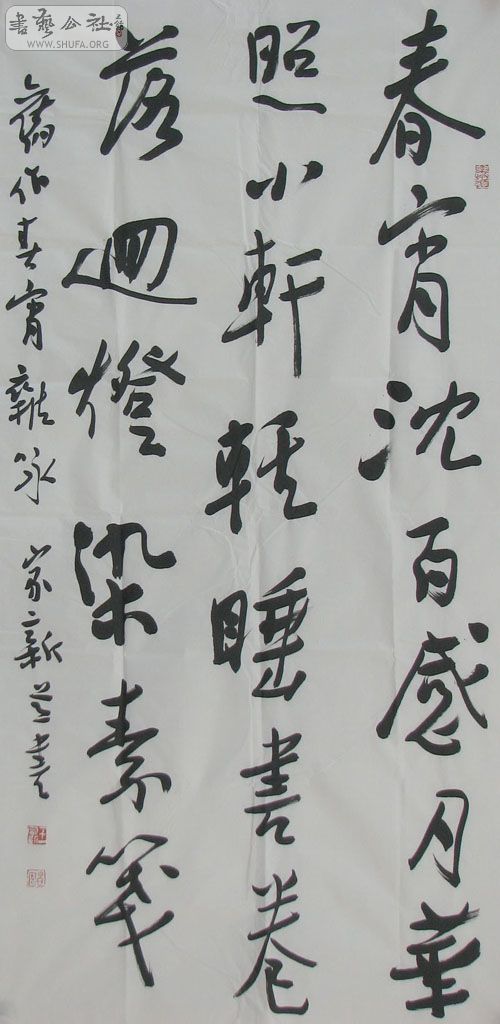 春宵沈百感月華
照小軒輕睡書卷
落迴燈染素箋
舊作春宵雜咏 家新并書
書藝公社
WWW.SHUFA.ORG